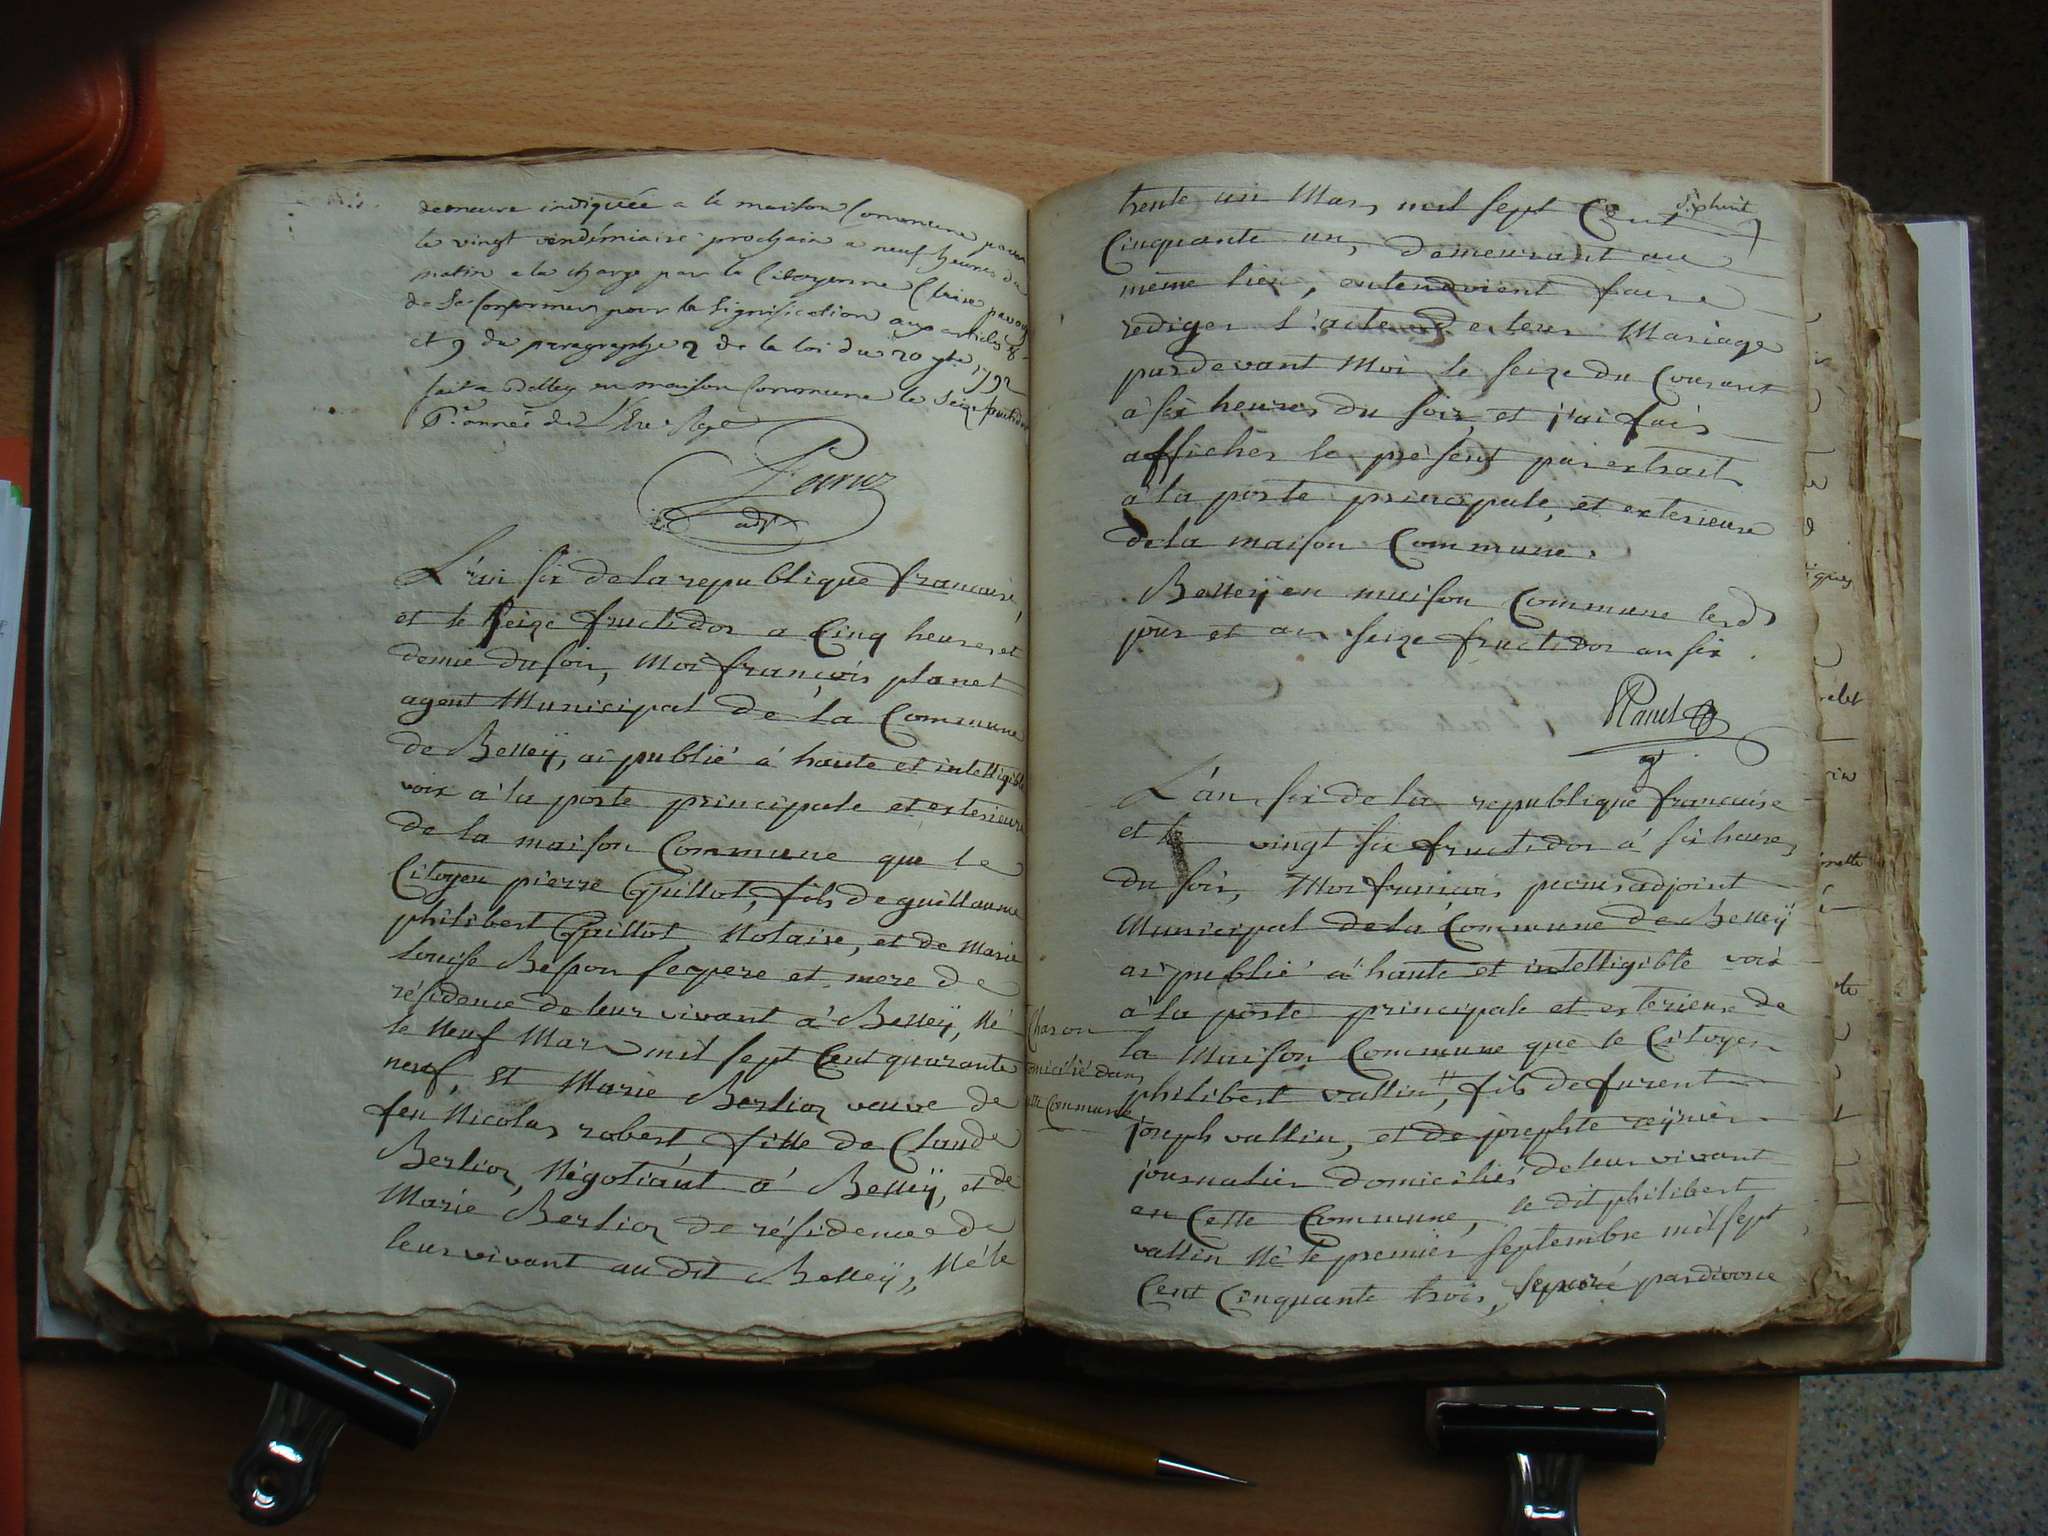 demeure indiquée a la maison Commune pour
le vingt vendémiaire prochain a neuf heures du
matin a la charge par la Citoyenne Claire
de Se Conformer pour la Signification aux articles 8
et 9 du paragraphe 2 de la loi du 20 7bre 1792
fait a Belley en maison Commune le Seize fructidor
6e. année de l'Ere Rep
adjt
L'an six de la republique francaise,
et le seize fructidor a Cinq heures et
demie du soir, Moi françois planet
agent Municipal de la Commune
de Belleÿ, ai publié á haute et intelligible
voix a la porte principale et exterieure
de la maison Commune que le
Citoyen pierre Guillot, fils de guillaume
philibert Guillot, Notaire, et de Marie
louise Besson ses pere et mere de
résidence de leur vivant a Belleÿ, Né
le Neuf Mars mil sept Cent quarante
neuf, Et Marie Berlioz veuve de
feu Nicolas robert, fille de Claude
Berlioz, Négotiant á Belleÿ, et de
Marie Berlioz de résidence de
leur vivant au dit Belleÿ, Né le
trente un Mars mil sept Cent
Cinquante un, demeurant au
même lieu, entendoient faire
rediger l'acte de leur Mariage
pardevant Moi le seize du Courant
a six heures du soir, et j'ai fais
afficher le présent par extrait
a la porte principale, et exterieure
de la maison Commune.
Belleÿ en maison Commune lesd
jour et an seize fructidor an six.
Planet
L'an six de la republique francaise
et le vingt six fructidor á six heures
du soir, Moi francois adjoint
Municipal de la Commune de Belleÿ
ai publié a haute et intelligible voix
a la porte principale et exterieure de
la Maison Commune que le Citoyen
philibert vallin, fils de furent
joseph vallin, et de josephte reÿnier
journalier domiciliés de leur vivant
en Cette Commune, le dit philibert
vallin Né le premier septembre mil sept
Cent Cinquante trois, separé par divorce